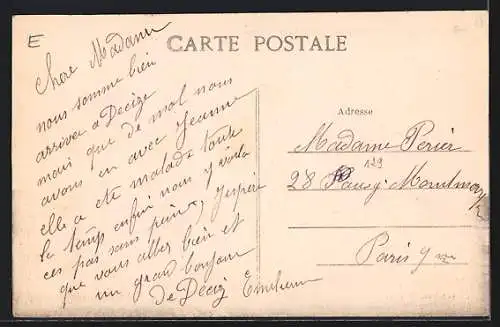 E
CARTE POSTALE
Chere Madame
nous somme bien
arrivee a Decize
mais que de mal nous
avons eu avec Jeanne
elle a ete malade toute
le temp enfin nous y voila
ces pas sans peine, j'espere
que vous allez bien et
un grand bonjour
de Deciz
Adresse
Madame Perier
129
28 Faubg Montmar
Paris 9me